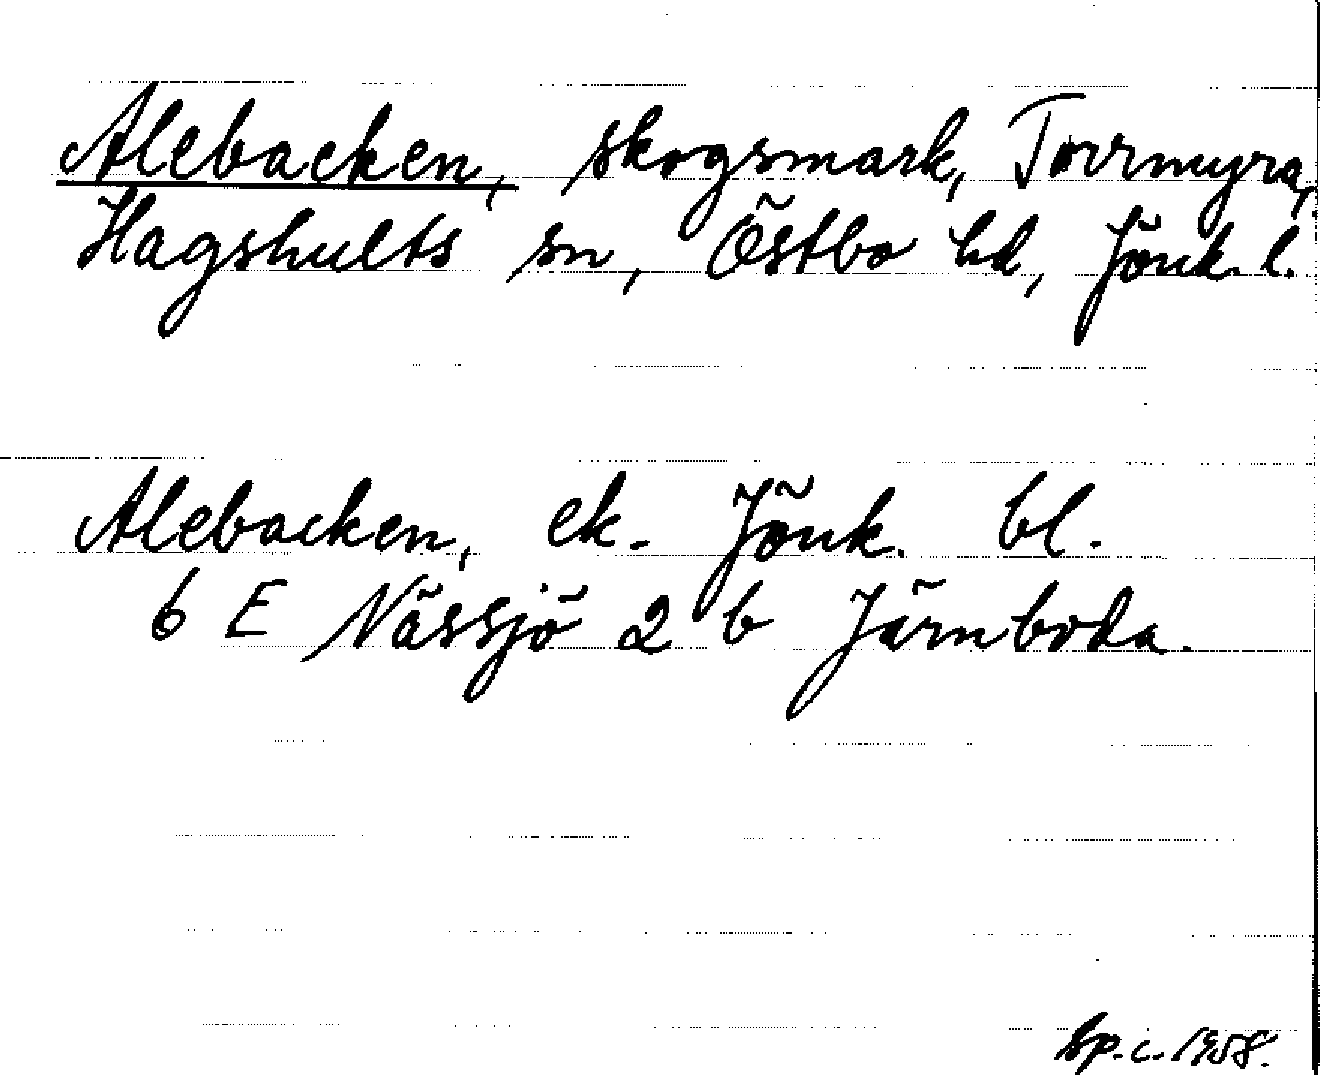 Alebacken, skogsmark, Torrmyra,
Hagshults sn, Östbo hd, Jönk. l.
Alebacken, ek. Jönk. bl.
6 E Nässjö 2 b Järnboda.
Sp.c. 1958.